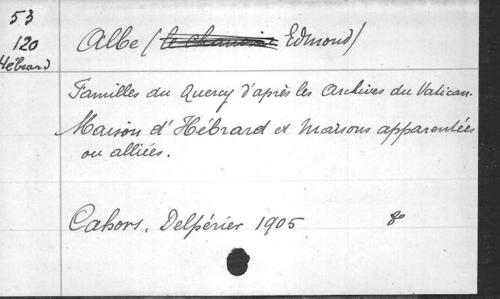 53
120
Hébrard
Albe (le chanoine Edmond)
Familles du Quercy d'après les Archives du Vatican.
Maison d'Hébrard et Maisons apparentées
ou alliées.
Cahors, Delpérier 1905 8º